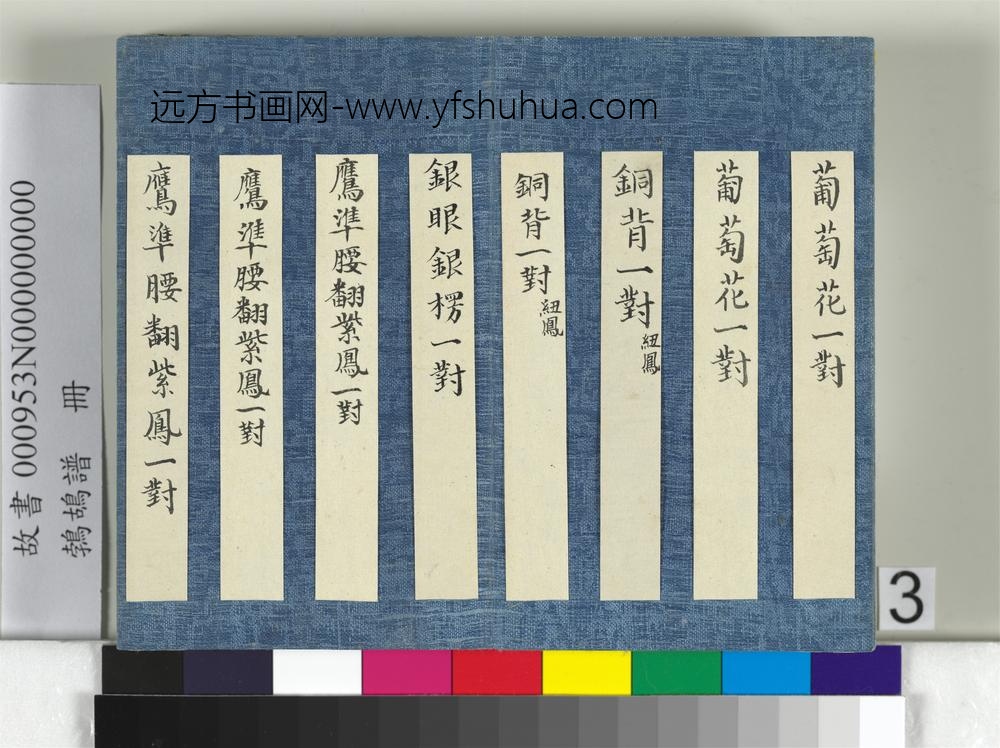 远方书画网-www.yfshuhua.com
葡萄花一對
葡萄花一對
銅背一對
紐鳳
銅背一對
紐鳳
銀眼銀楞一對
鷹準腰翻紫鳳一對
鷹準腰翻紫鳳一對
鷹準腰翻紫鳳一對
故書000953N000000000
鵓鴣譜 冊
3